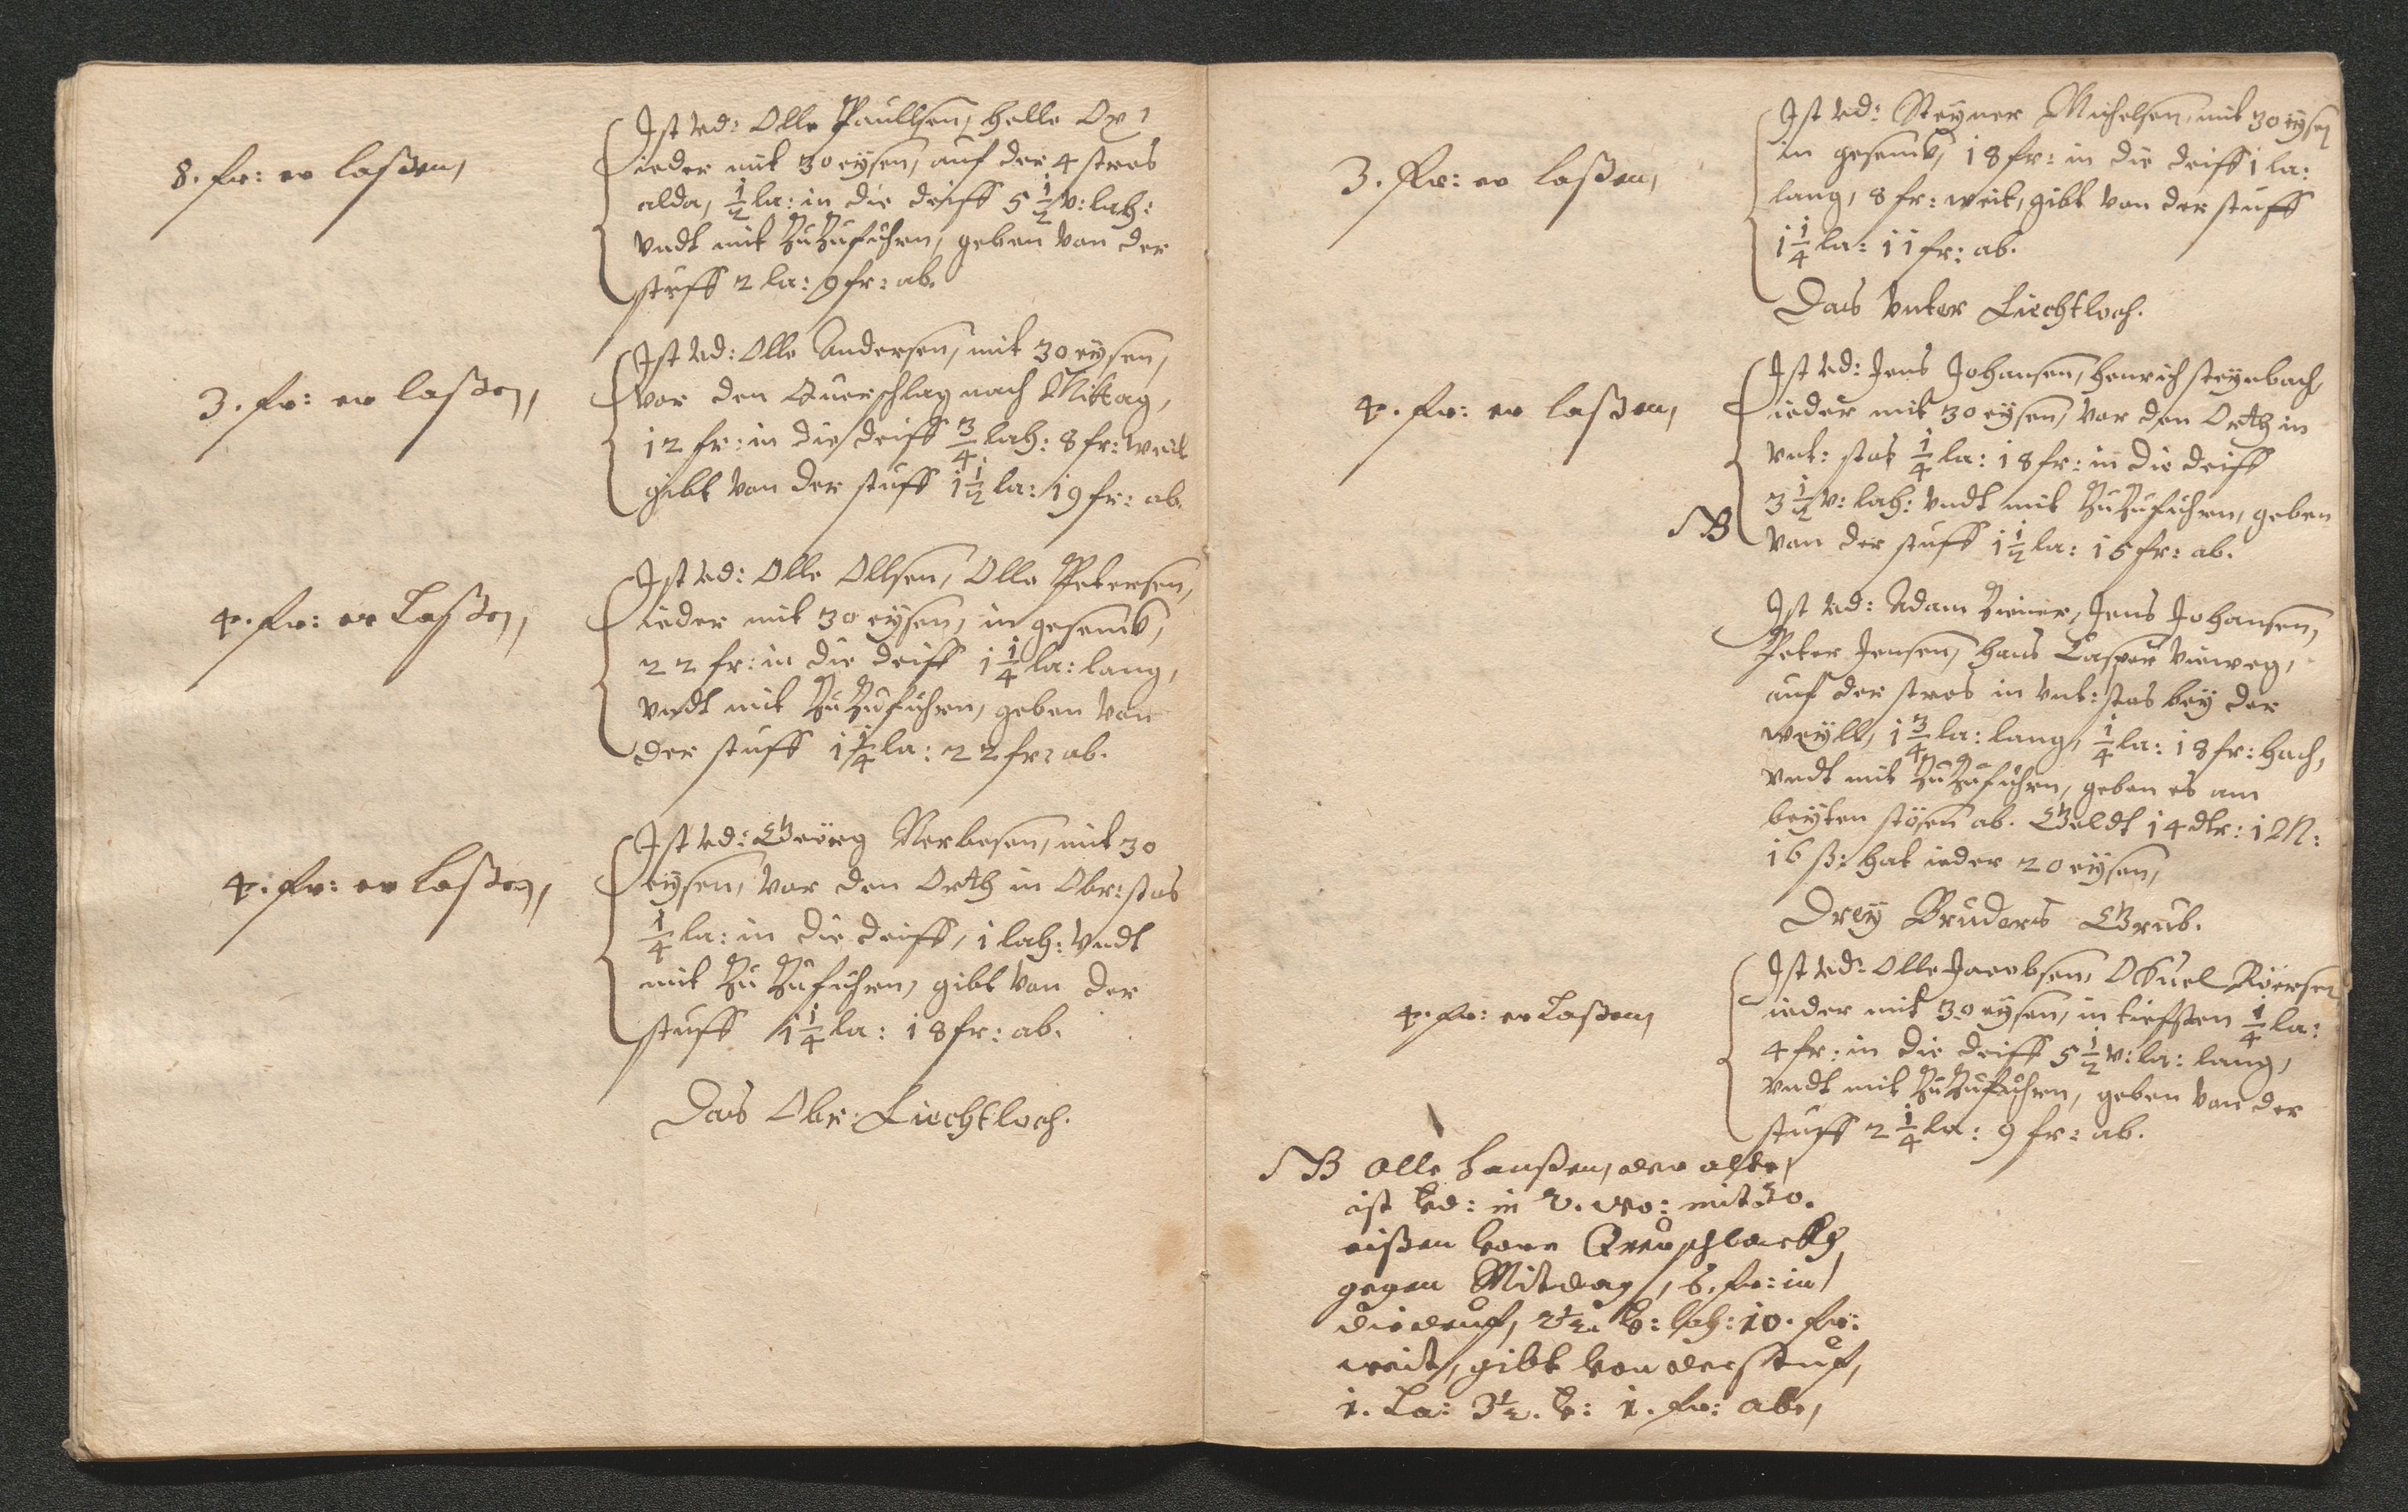 8. fr: er laßen,
Ist vd: Olle Paullsen, Helle
ieder mit 30 eÿsen, auf der 4 stros
alda, 1/2 la: in die deiff 5 1/2 v: lah:
vndt mit Zu Zufuhren, geben von der
stuff 2 la: 9 fr: ab.
3. fr: er laßen,
Ist vd: Olle Andersen, mit 30 eÿsen,
vor den Querschlag nach Mittag,
12 fr: in die deiff 3/4 lah: 8 fr: weit
gibt von der stuff 1 1/2 la: 19 fr: ab.
4. fr: er Laßen,
Ist vd: Olle Ollsen, Olle Petersen,
ieder mit 30 eÿsen, in gesenck,
22 fr: in die deiff 1 1/4 la: lang,
vndt mit Zu Zufuhren, geben von
der stuff 1 1/4 la: 22 fr: ab.
4. fr: er laßen,
Ist vd: Georg Rerbesen, mit 30
eÿsen, vor den Orth in Obr: stos
1/4 la: in die deiff, 1 lah: vndt
mit Zu Zufuhren, gibt von der
stuff 1 1/4 la: 18 fr: ab.
Das Obr: Liechtloch.
3. fr: er laßen,
Ist vd: Steÿner Michelsen, mit 30 eÿsen
in gesenck, 18 fr: in die deiff 1 la:
lang, 8 fr: weit, gibt von der stuff
1 1/4 la: 11 fr: ab.
Das Vnter Liechtloch.
4. fr: er laßen,
Ist vd: Jens Johansen, Henrich Steÿnbach,
ieder mit 30 eÿsen, vor den Orth in
vnt: stos 1/4 la: 18 fr: in die deiff
3 1/2 v: lah: vndt mit Zu Zufuhren, geben
NB von der stuff 1 1/2 la: 15 fr: ab.
Ist vd: Adam Ziener, Jens Johansen,
Peter Jensen, Hans Casper Vieweg,
auf der stros in vnt: stos beÿ der
weÿll, 1 3/4 la: lang, 1/4 la: 18 fr: hach,
vndt mit Zu Zufuhren, geben es am
beÿten stösen ab. Geldt 14 dlr: 1 M:
16 ß: hat ieder 20 eÿsen,
Dreÿ Bruders Grub.
4. fr: er Laßen,
Ist vd: Olle Jacobsen, Roersen
ieder mit 30 eÿsen, in tieffsten 1/4 la:
4 fr: in die deiff 5 1/2 v: la: lang,
vndt mit Zu Zufuhren, geben von der
stuff 2 1/4 la: 9 fr: ab.
NB Olle Hanßen, der alte,
ist vd: in 2. wo: mit 30.
eißen vorn Querschlackh
gegen Mitdag, 6. fr: in
die deuf, 2 1/2. v: lah: 10. fr:
weit, gibt von der stuf,
1. La: 3 1/2. v: 1. fr: ab,